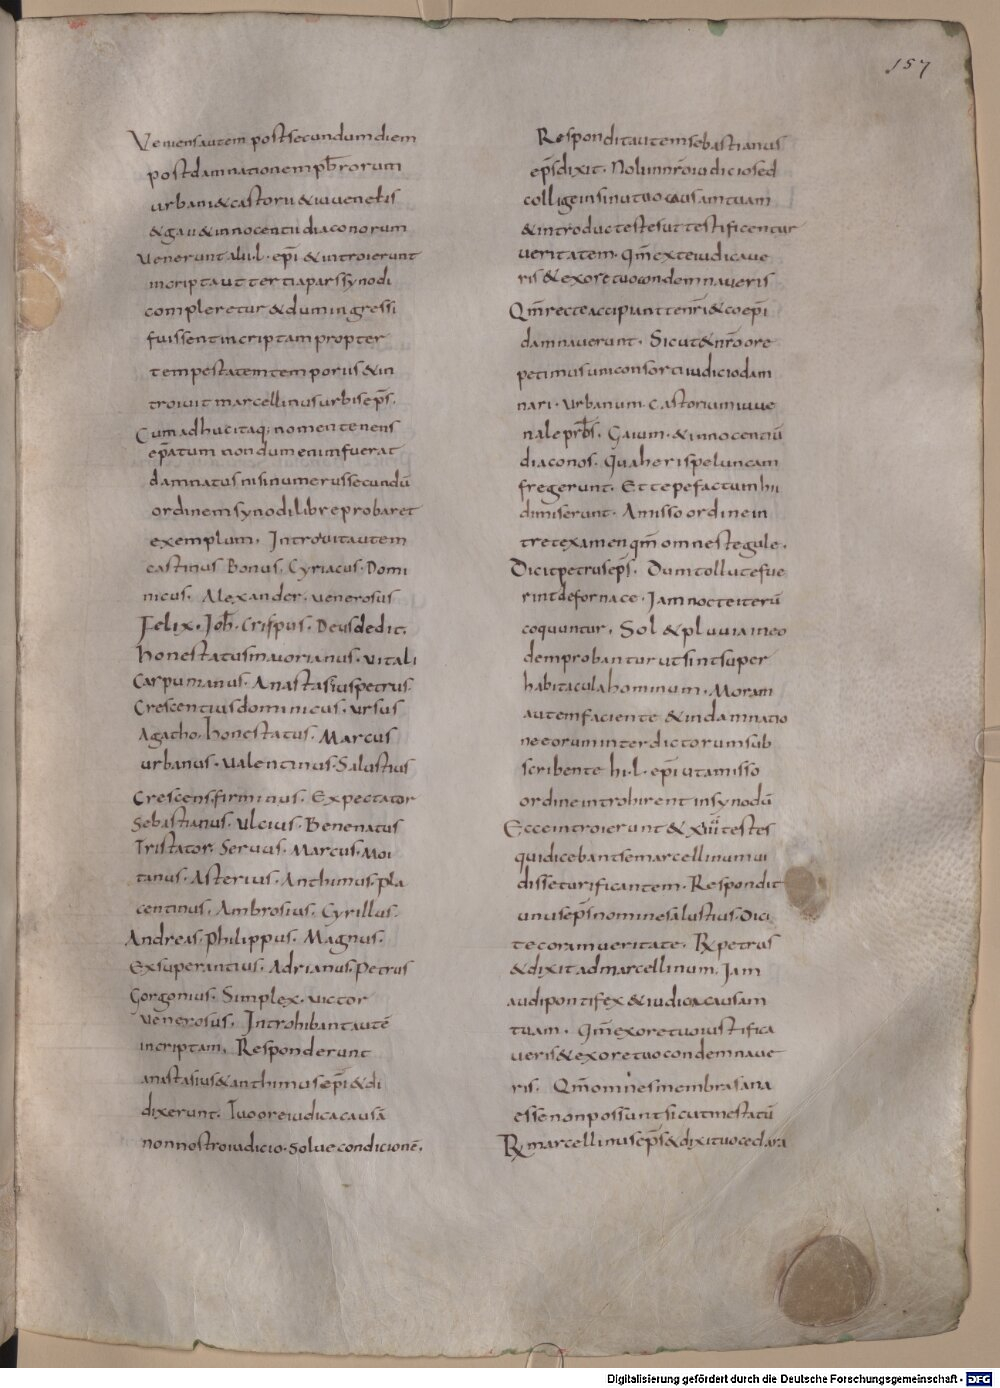 157
Veniens autem post secundum diem
post damnationem pb̅rorum
urbani & castorii & iuvenelis
& gaii & innocentii diaconorum
Venerunt alii l. ep̅i & introierunt
incripta ut tertia pars synodi
compleretur & dum ingressi
fuissent in criptam propter
tempestatem temporus & in
troivit marcellinus urbis ep̅s.
Cum adhuc itaq; nomen tenens
ep̅atum nondum enim fuerat
damnatus nisi numerus secundū
ordinem synodi libre probaret
exemplum. Introivit autem
castinus Bonus, Cyriacus. Domi
nicus. Alexander. venerosus
Felix. Joh̅. Crispus. Deusdedit.
honestatus maiorianus. vitali
Carpumanus. Anastasius petrus.
Crescentius dominicus. ursus
Agatho. honestatus. Marcus
urbanus. valentinus. Salustius
Crescens. firminus. Expectator
Sebastianus. ulcius. Benenatus
Tristator. Servus. Marcus. Moi
tanus. Asterius. Anthimus. pla
centinus. Ambrosius. Cyrillus.
Andreas. philippus. Magnus.
Exsuperantius. Adrianus. Petrus
Gorgonius. Simplex. victor
venerosus. Introhibant autē
in criptam. Responderunt
anastasius & anthimus ep̅i & di
dixerunt. Tuo ore iudica causā
non nostro iudicio. Solve condicionē.
Respondit autem sebastianus
ep̅s dixit. Noli in n̅ro iudicio sed
collige in sinu tuo causam tuam
& introduc testes ut testificentur
veritatem. Qm̅ ex te iudicave
ris & ex ore tuo condemnaveris
Qm̅ recte accipiunt ten̅ri & coep̅i
damnaverunt. Sicut & n̅ro ore
petimus in consorti iudicio dam
nari. urbanum. Castorium iuve
nale prb̅s. Gaium. & innocentiū
diaconos. Qua heri speluncam
fregerunt. Et tepefactum hii
dimiserunt. Amisso ordine in
tret examen qm̅ omnes tegule.
Dicit petrus ep̅s. Dum tollute fue
rint de fornace. Jam nocte iterū
coquuntur. Sol & pluvia ineo
dem probantur ut sint super
habitacula hominum. Moram
autem faciente & in damnatio
ne eorum interdictorum sub
scribente hi. l. ep̅i ut amisso
ordine introhirent in synodū
Ecce introierunt & xiiii testes
qui dicebant se marcellinum vi
disse turificantem. Respondit
unus ep̅s nomine salustius. Dici
te coram veritate. R̅ petrus
& dixit ad marcellinum. Jam
audi pontifex & iudica causam
tuam. Qm̅ ex ore tuo iustifica
veris & ex ore tuo condemnave
ris. Qm̅ omnes membra sana
esse non possunt sicut mestatū
R̅ marcellinus ep̅s & dixit voce clara
Digitalisierung gefördert durch die Deutsche Forschungsgemeinschaft - DFG